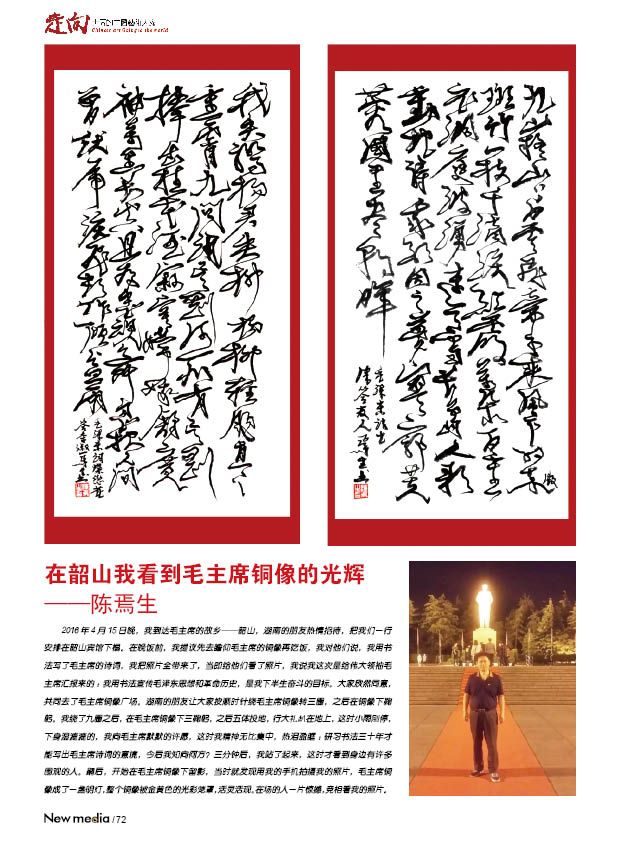 走向
Chinese art Going to the world
我失骄杨君失柳杨柳轻飏直上
重霄九问讯吴刚何所有吴刚
捧出桂花酒寂寞嫦娥舒广
袖万里长空且为忠魂舞忽报人间
曾伏虎泪飞顿作倾盆雨
九嶷山上白云飞帝子乘风下翠微
斑竹一枝千滴泪红霞万朵百重
衣洞庭波涌连天雪长岛人歌
动地诗我欲因之梦寥廓芙
蓉国里尽朝晖
在韶山我看到毛主席铜像的光辉
——陈焉生
2016年4月15日晚，我到达毛主席的故乡——韶山，湖南的朋友热情招待，把我们一行
安排在韶山宾馆下榻。在晚饭前，我提议先去瞻仰毛主席的铜像再吃饭，我对他们说，我用书
法写了毛主席的诗词，我把照片全带来了，当即给他们看了照片，我说我这次是给伟大领袖毛
主席汇报来的；我用书法宣传毛泽东思想和革命历史，是我下半生奋斗的目标。大家欣然同意，
共同去了毛主席铜像广场，湖南的朋友让大家按顺时针绕毛主席铜像转三圈，之后在铜像下鞠
躬。我绕了九圈之后，在毛主席铜像下三鞠躬，之后五体投地，行大礼趴在地上，这时小雨刚停，
下身湿漉漉的，我向毛主席默默的许愿，这时我精神无比集中，热泪盈眶；研习书法三十年才
能写出毛主席诗词的意境，今后我知向何方？三分钟后，我站了起来，这时才看到身边有许多
围观的人。随后，开始在毛主席铜像下留影，当时就发现用我的手机拍摄我的照片，毛主席铜
像成了一盏明灯，整个铜像被金黄色的光彩笼罩，活灵活现，在场的人一片惊撼，竞相看我的照片。
New media /72